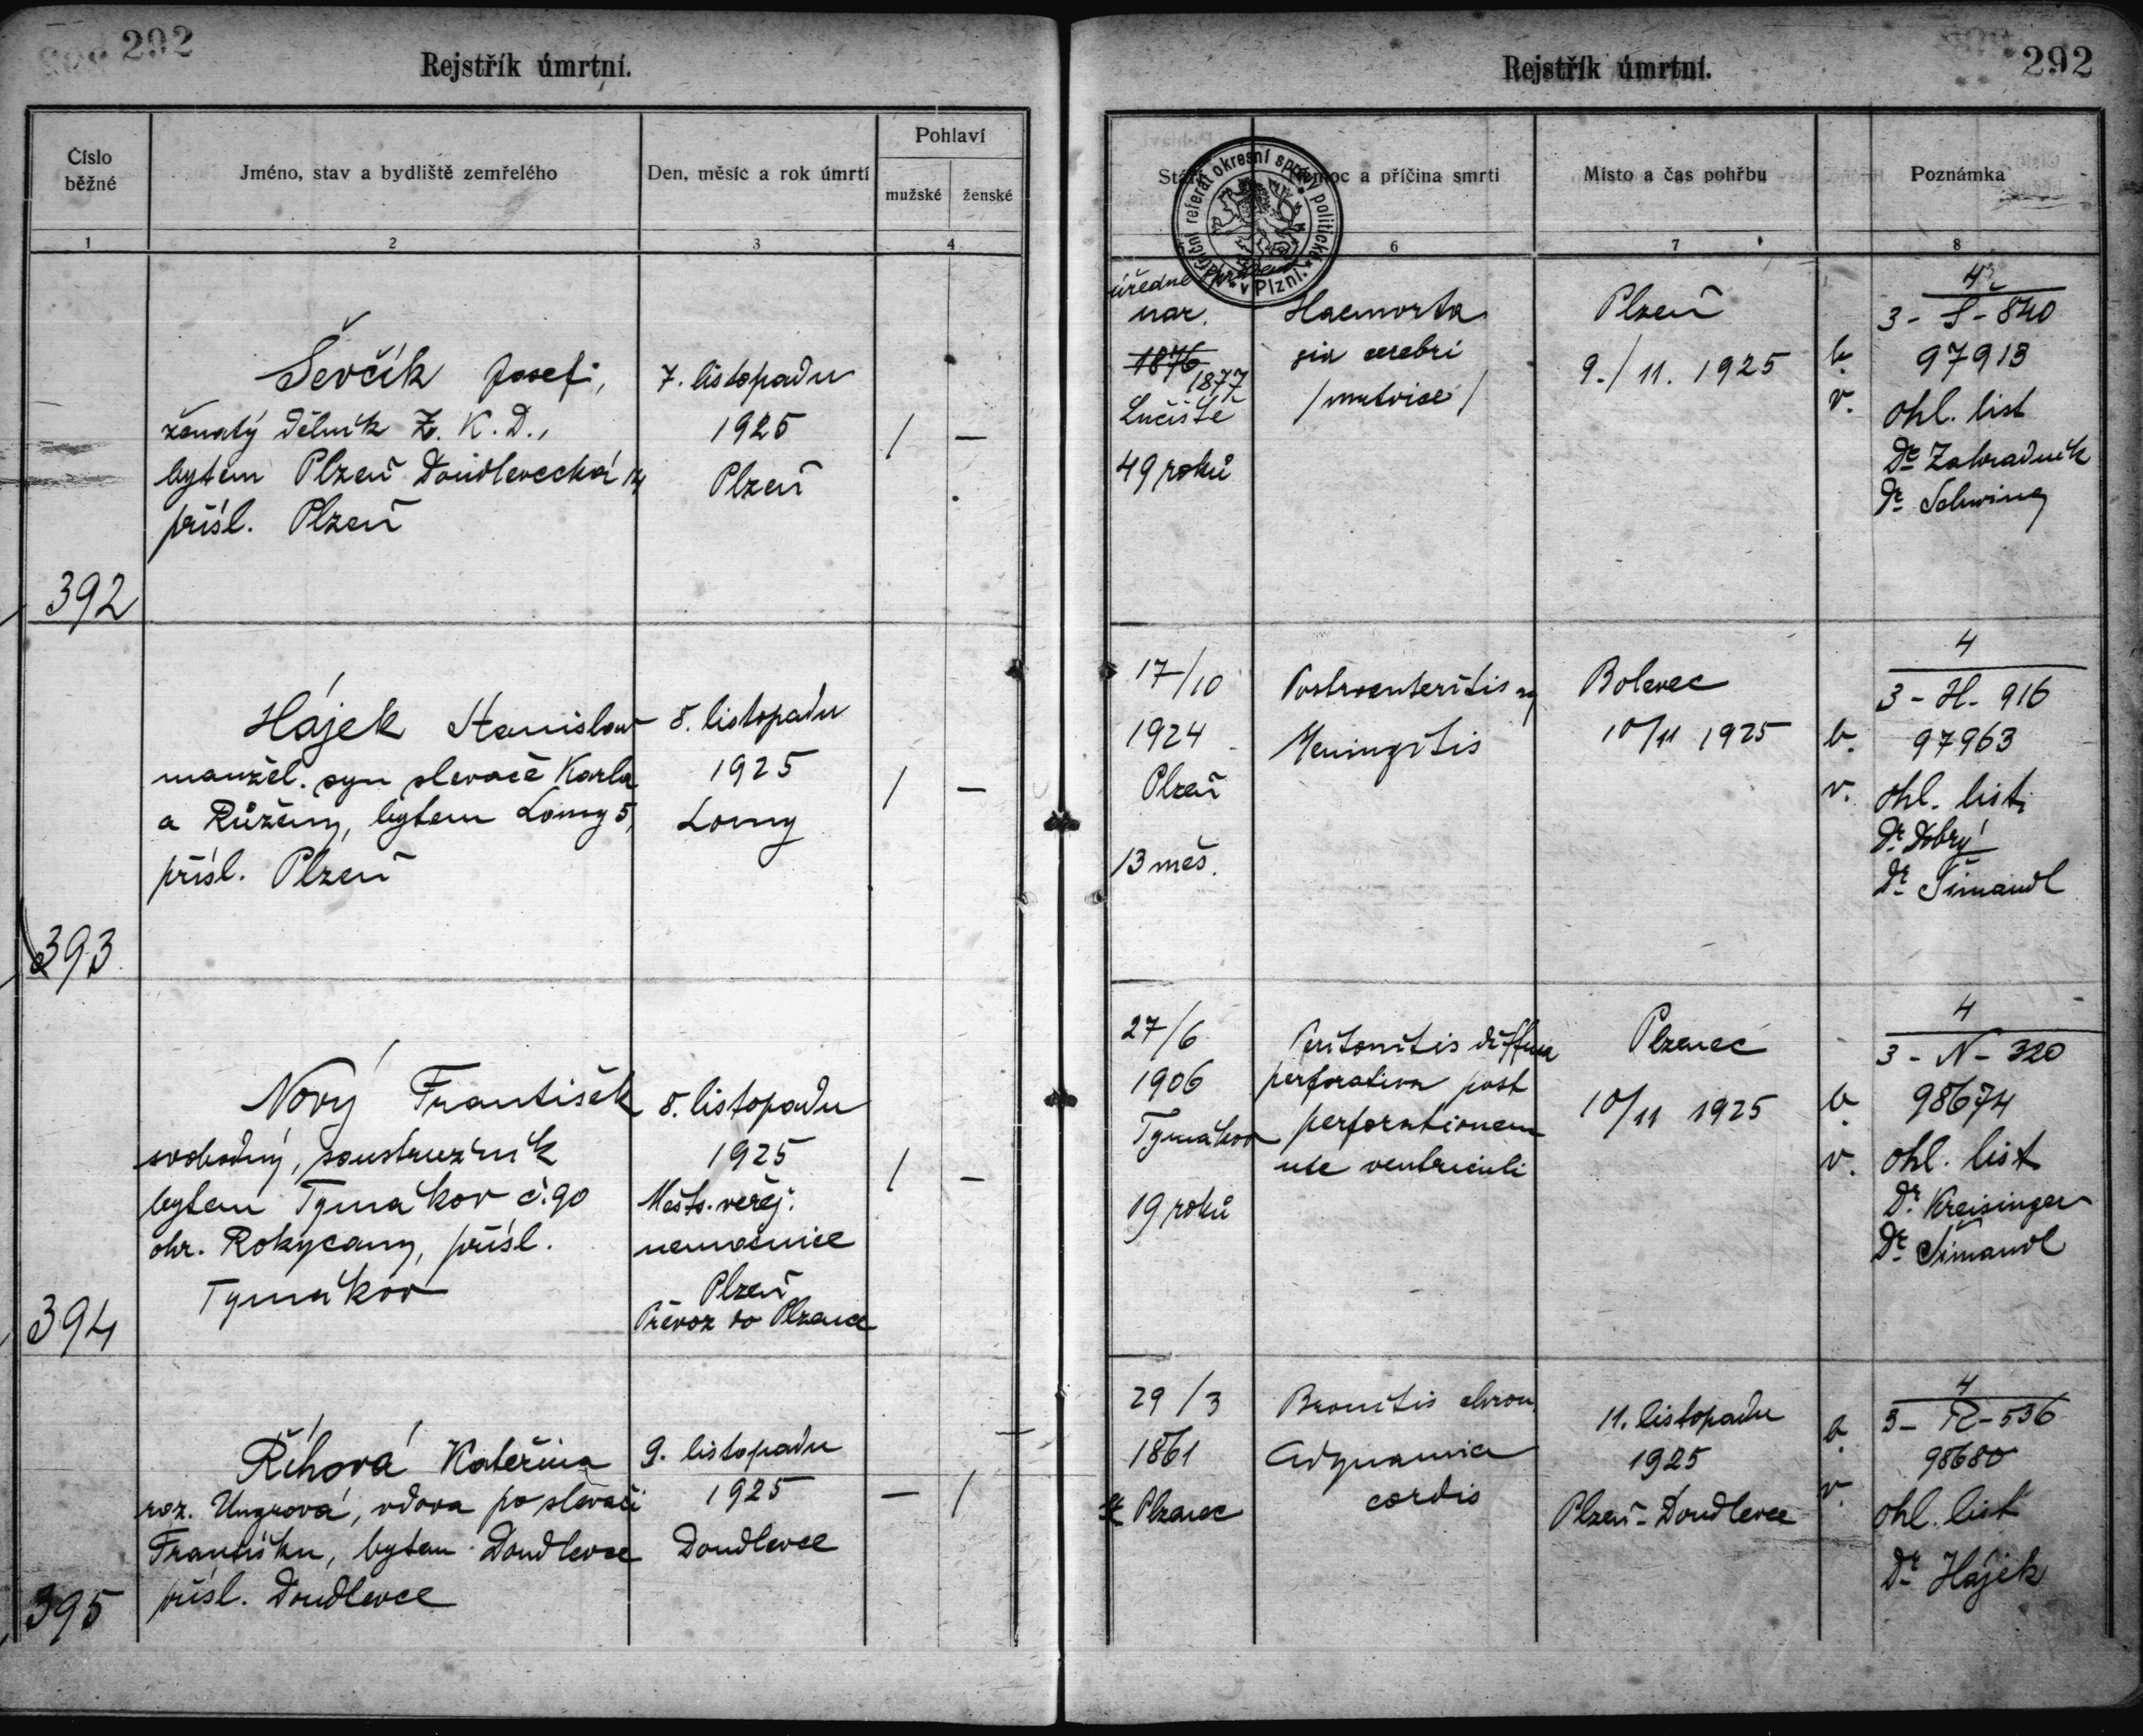 292
Rejstřík úmrtní.
Číslo běžné
Jméno, stav a bydliště zemřelého
Den, měsíc a rok úmrtí
Pohlaví
mužské
ženské
1
2
3
4
Ševčík Josef,
ženatý dělník Z. K. D.,
bytem Plzeň Doudlevecká
přísl. Plzeň
7. listopadu
1925
Plzeň
/ —
392
Hájek Stanislav
manžel. syn slevače Karla
a Růženy, bytem Lomy 5,
přísl. Plzeň
8. listopadu
1925
Lomy
/ —
393
Nový František
svobodný, soustružník
bytem Tymákov č. 90
okr. Rokycany, přísl.
Tymákov
8. listopadu
1925
Městs. veřej.
nemocnice
Plzeň
Převoz do Plzence
/ —
394
Říhová Kateřina
roz. Ungrová, vdova po slevači
Františku, bytem Doudlevce
přísl. Doudlevce
9. listopadu
1925
Doudlevce
— /
395
292
Rejstřík úmrtní.
Nemoc a příčina smrti
Místo a čas pohřbu
Poznámka
6
7
8
zdravotní referát okresní správy politické v Plzni.
úředně
nar.
1876
1877
Lučiště
49 roků
Haemorrha
gia cerebri
/mrtvice/
Plzeň
9./11. 1925
b.
v.
4
3 - Š - 840
97913
ohl. list
Dr Zahradník
Dr Schwing
17/10
1924
Plzeň
13 měs.
Gastroenteritis
Meningitis
Bolevec
10/11 1925
b.
v.
4
3 - H - 916
97963
ohl. list
Dr Dobrý
Dr Šimandl
27/6
1906
Tymákov
19 roků
Peritonitis diffusa
perforativa post
perforationem
ulc ventriculi
Plzenec
10/11 1925
b
v.
4
3 - N - 320
98674
ohl. list
Dr Kreisinger
Dr Šimandl
29/3
1861
St Plzenec
Bronitis chron.
Adynamia
cordis
11. listopadu
1925
Plzeň - Doudlevce
b.
v.
4
3 - Ř - 536
98680
ohl. list
Dr Hájek